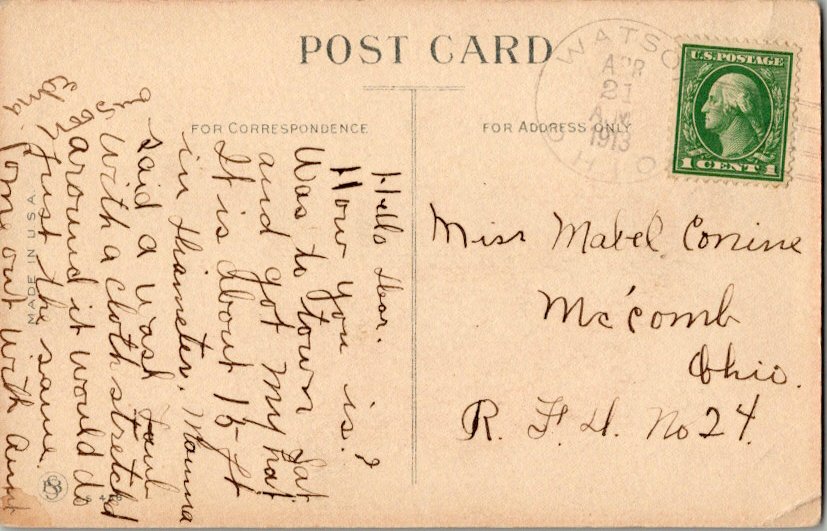 POST CARD
FOR CORRESPONDENCE
FOR ADDRESS ONLY
WATSO
APR
21
A.M.
1913
OHIO
U.S. POSTAGE
1 CENT 1
Miss Mabel Conine
Mc'comb
Ohio.
R. F. D. No 24.
Hello Dear.
How you is.?
Was to town Sat
and got my hat
It is about 15 ft
in diameter. Mama
said a wash
with a cloth stretched
around it would do
just the same.
come out with Aunt
Edna.
MADE IN U.S.A.